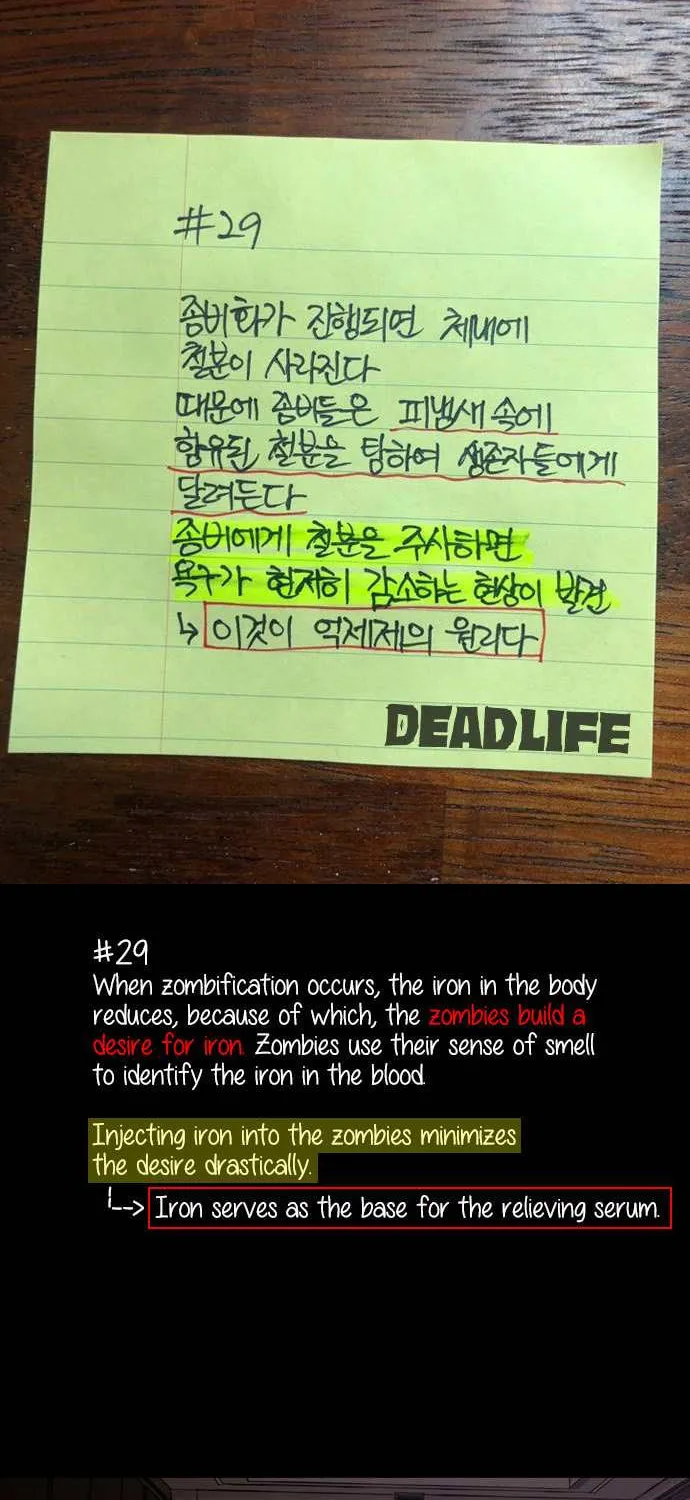 #29
좀비화가 진행되면 체내에
철분이 사라진다
때문에 좀비들은 피냄새 속에
함유된 철분을 탐하여 생존자들에게
달려든다
좀비에게 철분을 주사하면
욕구가 현저히 감소하는 현상이 발견
↳ 이것이 억제제의 원리다
DEADLIFE
#29
When zombification occurs, the iron in the body
reduces, because of which, the zombies build a
desire for iron. Zombies use their sense of smell
to identify the iron in the blood.
Injecting iron into the zombies minimizes
the desire drastically.
Iron serves as the base for the relieving serum.